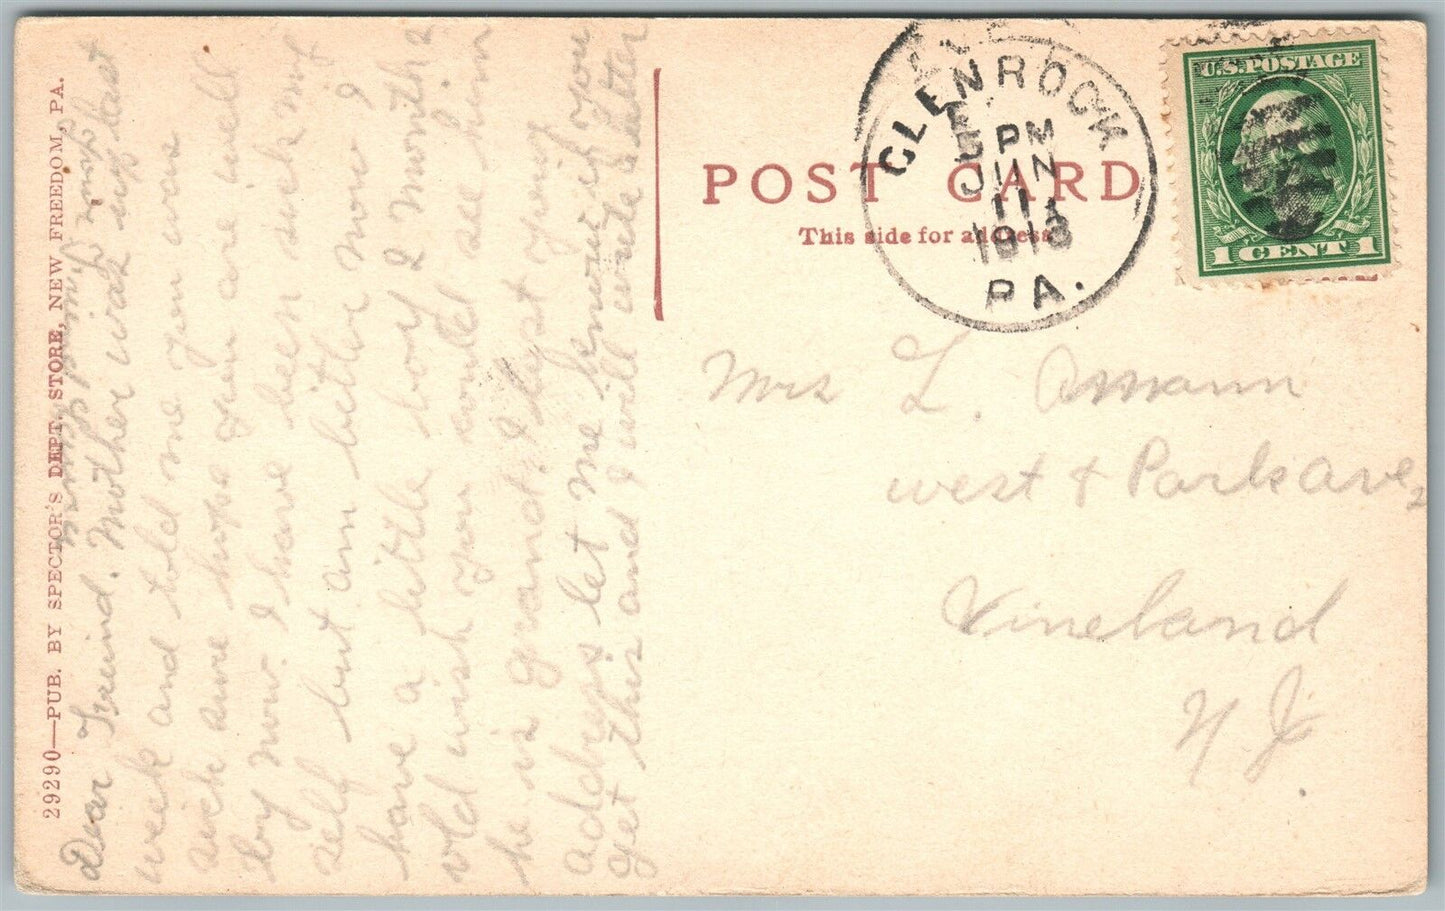 29290—PUB. BY SPECTOR'S DEPT. STORE, NEW FREEDOM, PA.
Dear Freind. Mother was up last
week and told me you were
sick sure hope you are well
by now. I have been sick my
self but am better now I
have a little boy 2 month
old wish you could see him
he is grand. I lost your
address let me know if you
get this and I will write a letter
POST CARD
This side for address
GLENROCK
PM
JUN
11
1913
PA.
U.S. POSTAGE
1 CENT 1
Mrs L. Amann
west & Park ave,
Vineland
N. J.